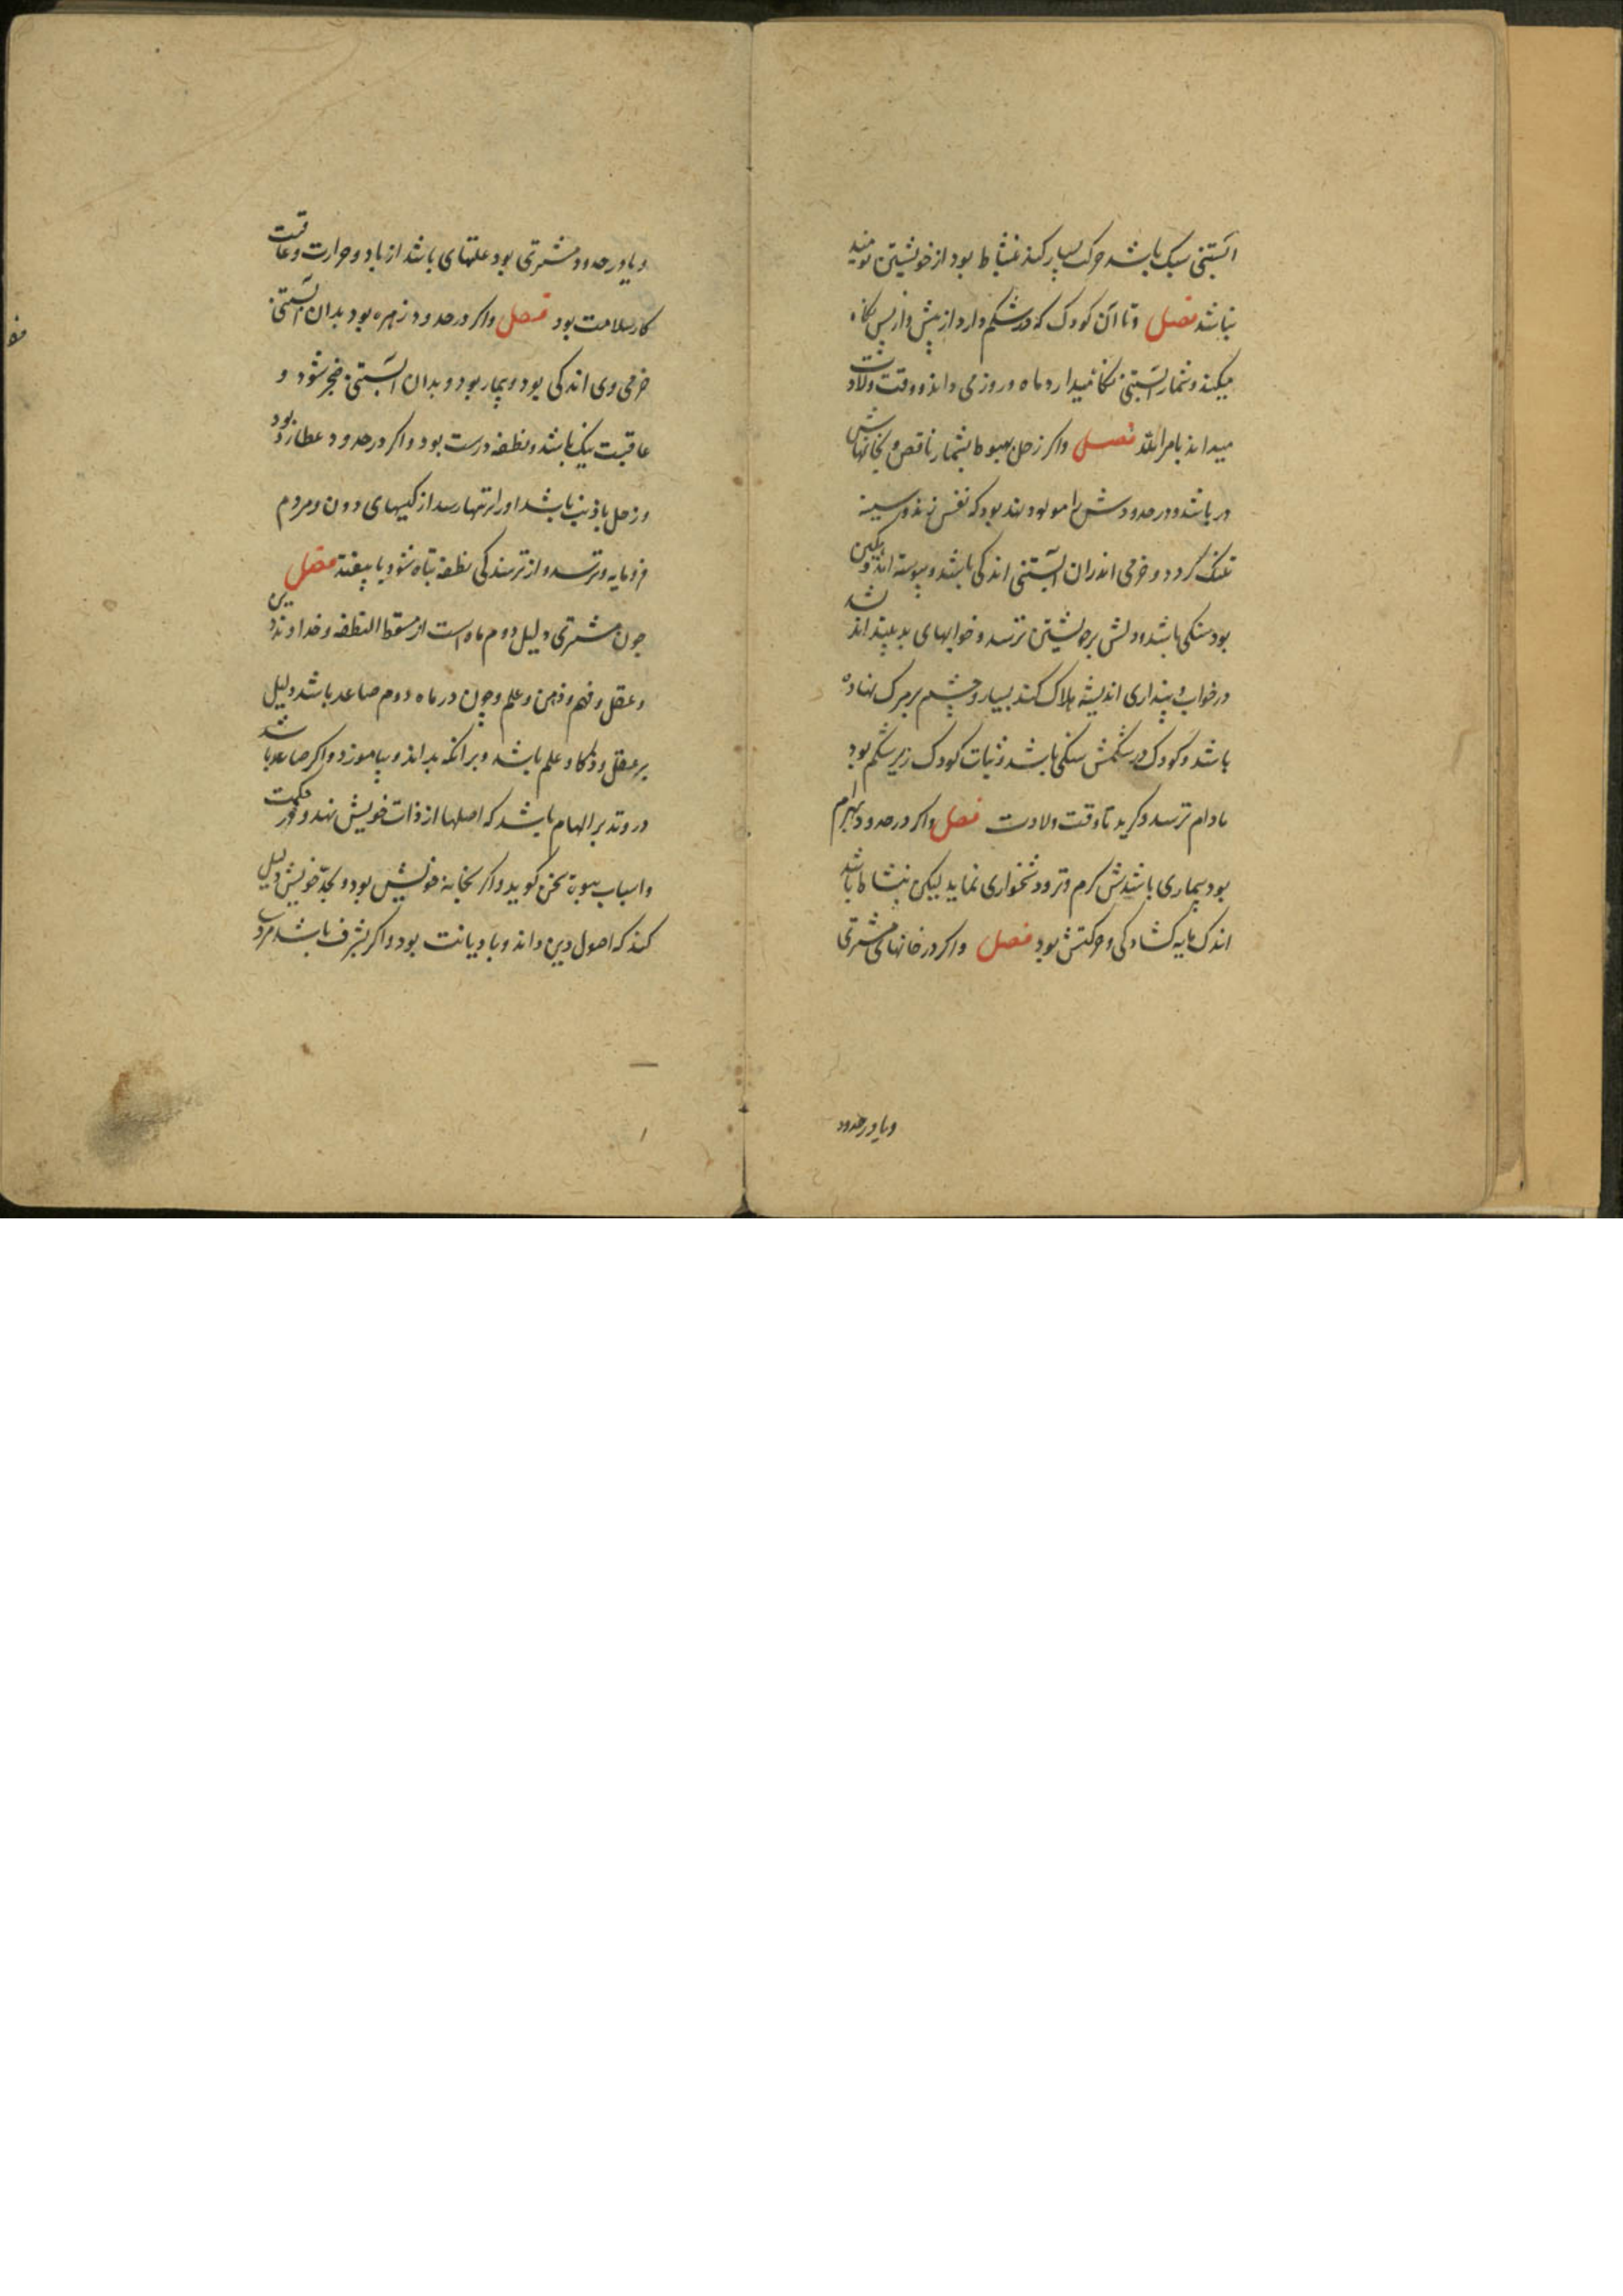 آبستنی سبک باشد حرکت بسیار کند نشاط بود از خویشتن نومید
نباشد فصل وتا آن کودک که در شکم دارد از پیش و از پس نگاه
میکند و شمار آبستنی نگاه میدارد ماه و روز می داند و وقت ولادت
میداند بامر الله فصل واکر زحل بهبوط بشمار ناقص و بخانهاش
در باشد و در حدودش را مولود بود که نفس زند و سینه
تنک کردد و خرمی اندران آبستنی اندکی باشد و پیوسته اندوهگین
بود سنکی باشد و دلش بر خویشتن ترسد و خوابهای بد بیند
در خواب و پنداری اندیشه هلاک کند بسیار و چشم بر مرک نهاده
باشد و کودک در شکمش سنکی باشد و ثبات کودک زیر شکم بود
مادام ترسد و کرید تا وقت ولادت فصل واکر در حدود بهرام
بود بیماری باشدش کرم وتر و دشخواری نماید لیکن بنشاط باشد
اندک مایه کشادکی و حرکتش بود فصل واکر در خانهای مشتری
ویا در حدود
ویا در حدود مشتری بود علتهای باشد از باد و حرارت وعاقبت
کار سلامت بود فصل واکر در حدود زهره بود بدان آبستنی
خرمی وی اندکی بود و بیمار بود و بدان آبستنی ضجر شود و
عاقبت نیک باشد و نطفه درست بود واکر در حدود عطارد بود
و زحل باذنب باشد اورا رسد از کسهای دون و مردم
فرومایه و ترسد و از ترسندکی نطفه تباه شود یا بیفتد فصل
چون مشتری دلیل دوم ماه است از مسقط النطفه و خداوند دین
و عقل و فهم و ذهن و علم و چون در ماه دوم صاعد باشد دلیل
بر عقل و ذکا و علم باشد و بر آنکه بداند و بیاموزد واکر صاعد باشد
در وتد بر الهام باشد که اصلها از ذات خویش نهد و در حکمت
و اسباب نبوت سخن کوید واکر بخانه خویش بود و بحد خویش دلیل
کند که اصول دین داند وبا دیانت بود واکر بشرف باشد